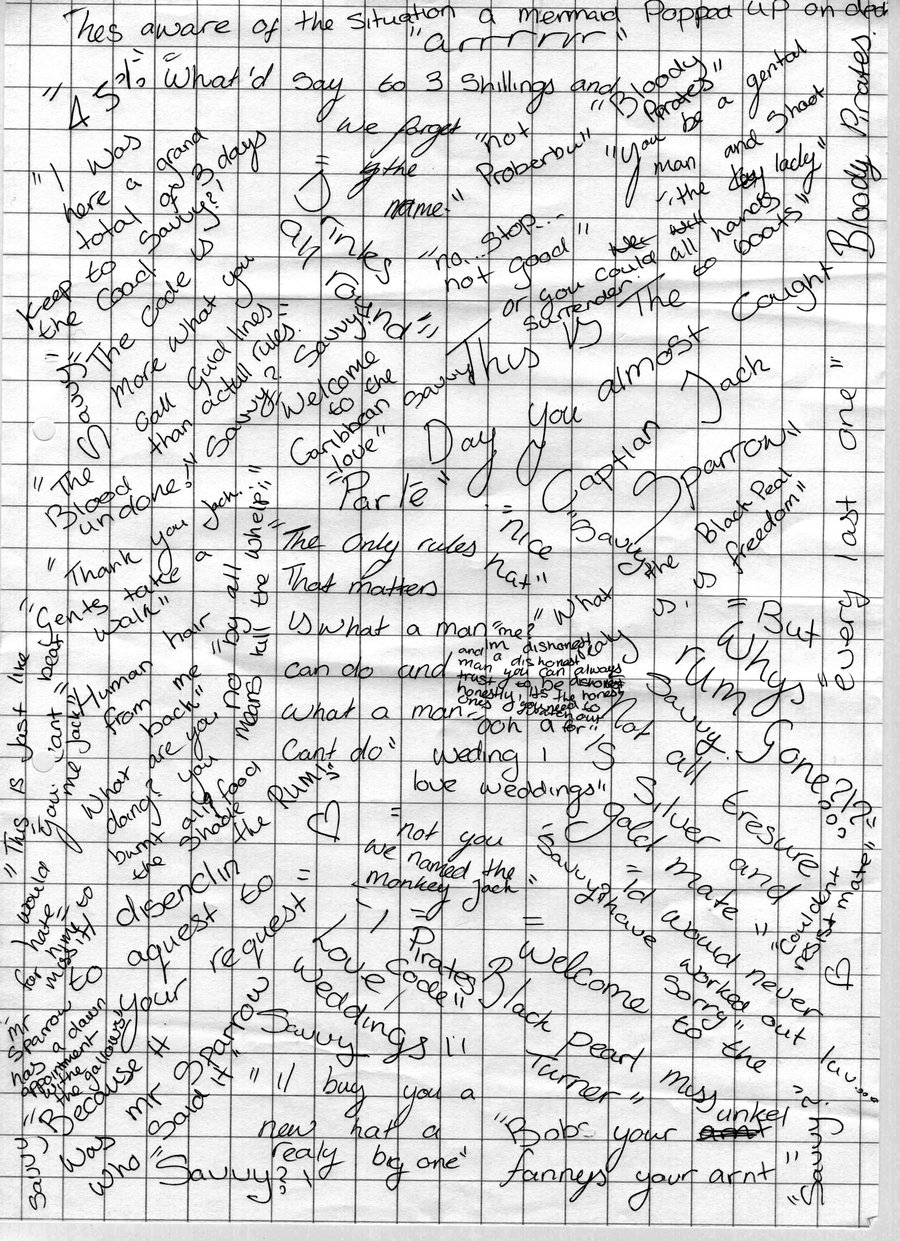 Thes aware of the Situation a mermaid Popped up on deck
"arrrrrrr"
"45%"
"What'd Say to 3 Shillings and
we forget
the
name."
"not
Proberbu"
"Bloody
Pirates"
"you be a gental
man and Shoot
"the lady"
Bloody Pirates.
"I was
here a grand
total of 3 days
Keep to Savvy?!
the Coad
"The Code is
more what you
call guid lines
than actull rules."
Savvy? Savvy!
Savvy
"no...stop...
not good"
or you could
surrender.
all hands
to boats"
This is The
Day you almost caught
Captian Jack
Sparrow"
Savvy
"Welcome
to the
Caribbean
love"
"Parlé"
"The
Blood
undone!"
"Thank you Jack.
"Gents take a
walk"
"Human hair
from me
back"
"nice
hat"
"Savvy
What the Black Peal
is, is freedom"
"every last one"
"The Only rules
That matters
is what a man
can do and
what a man
cant do"
"me?
and im dishonest
man a dishonest
trust to be dishonest
honestly its the honest
ones you need to
watch out
for"
ooh a
weding I
love weddings"
"But
Whys
rum
Gone?!?
Savvy
Not all tresure
is Silver and
gold mate"
"Couldent
resist mate"
"This is just like
"You cant beat
me jack"
What are you
doing?
burnt all
the food
Shade
the Rum!"
"no
you
"by all
means kill the whelp"
"not you
we named the
monkey jack"
Savvy?
"Id would never
have worked out luv....
Sorry"
would
hate
for him to
miss it!
to disenclin
aquest to
your request"
"Pirates
Code"
"I
Love
Weddings"
Savvy
"Welcome
to the
Black Pearl miss
Turner"
"Mr
Sparrow
has a dawn
appointment
with
the gallows"
Savvy
"Because it
was mr Sparrow
who Said it"
"Il buy you a
new hat a
realy big one"
Savvy?!
"Bobs your unkel
fannys your arnt"
"Savvy"?